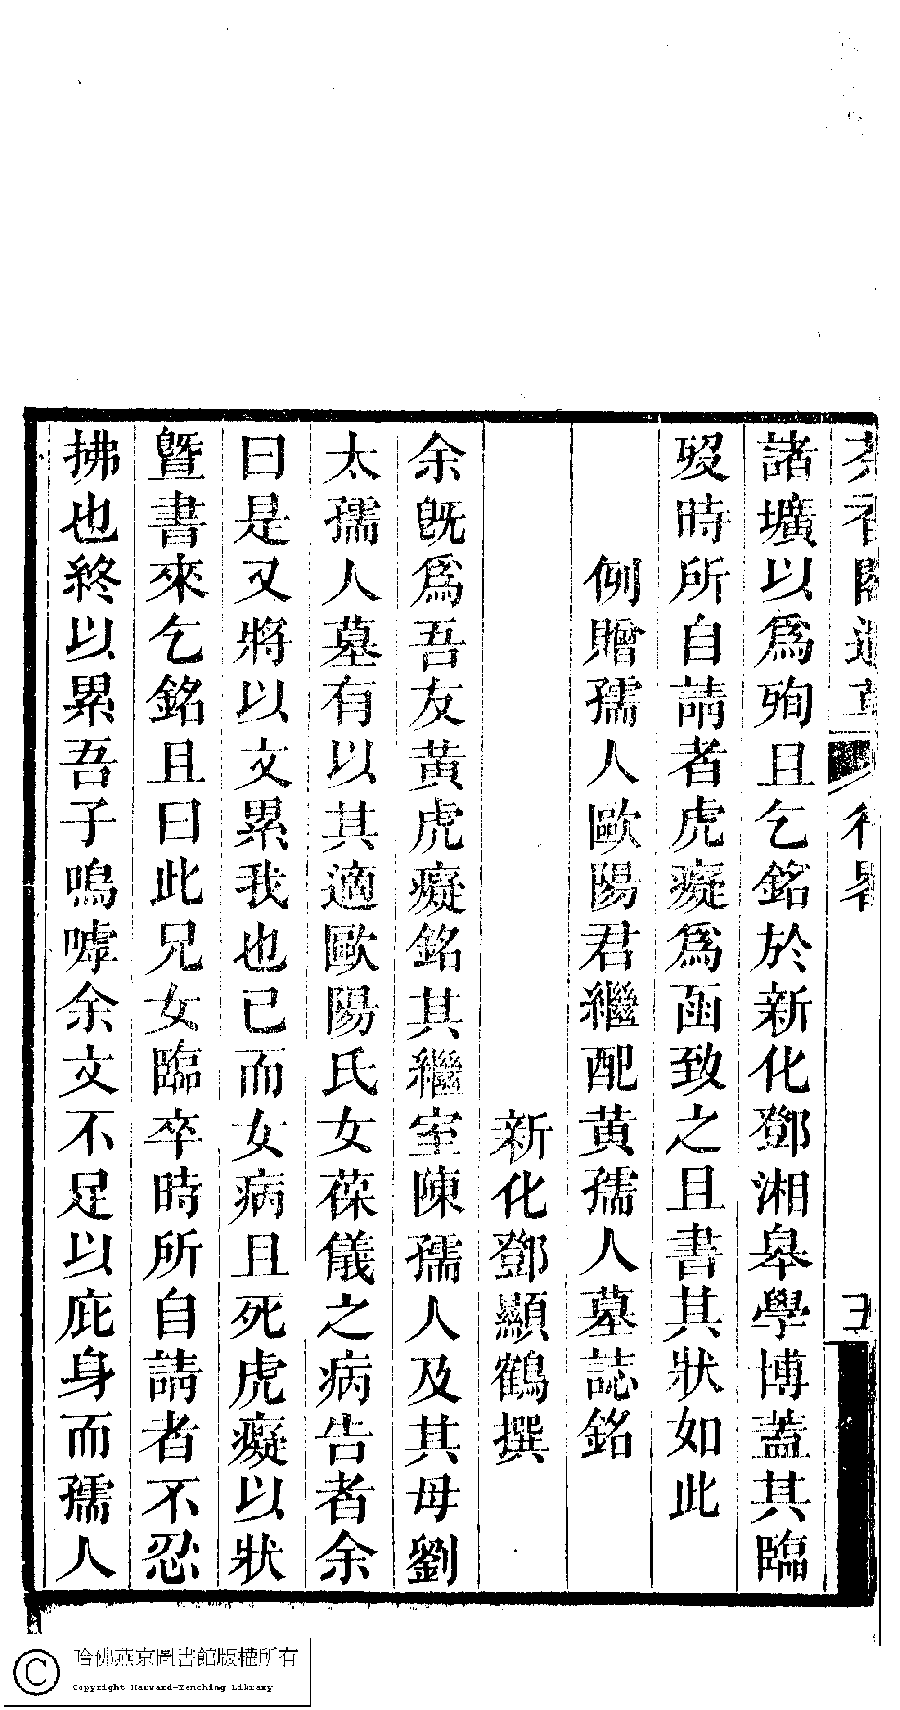 諸壙以爲殉且乞銘於新化鄧湘皋學博蓋其臨
歿時所自請者虎癡爲函致之且書其狀如此
例贈孺人歐陽君繼配黃孺人墓誌銘
新化鄧顯鶴撰
余旣爲吾友黃虎癡銘其繼室陳孺人及其母劉
太孺人墓有以其適歐陽氏女葆儀之病告者余
曰是又將以文累我也已而女病且死虎癡以狀
曁書來乞銘且曰此兄女臨卒時所自請者不忍
拂也終以累吾子嗚嘑余文不足以庇身而孺人
哈佛燕京圖書館版權所有
Copyright Harvard-Yenching Library